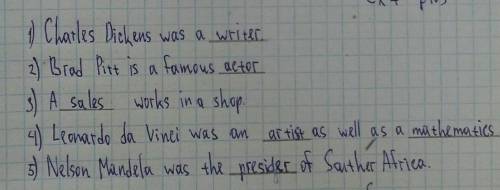 1) Charles Dickens was a writer.
2) Brad Pitt is a famous actor
3) A sales works in a shop.
4) Leonardo da Vinci was an artist as well as a mathematics
5) Nelson Mandela was the presider of Souther Africa.